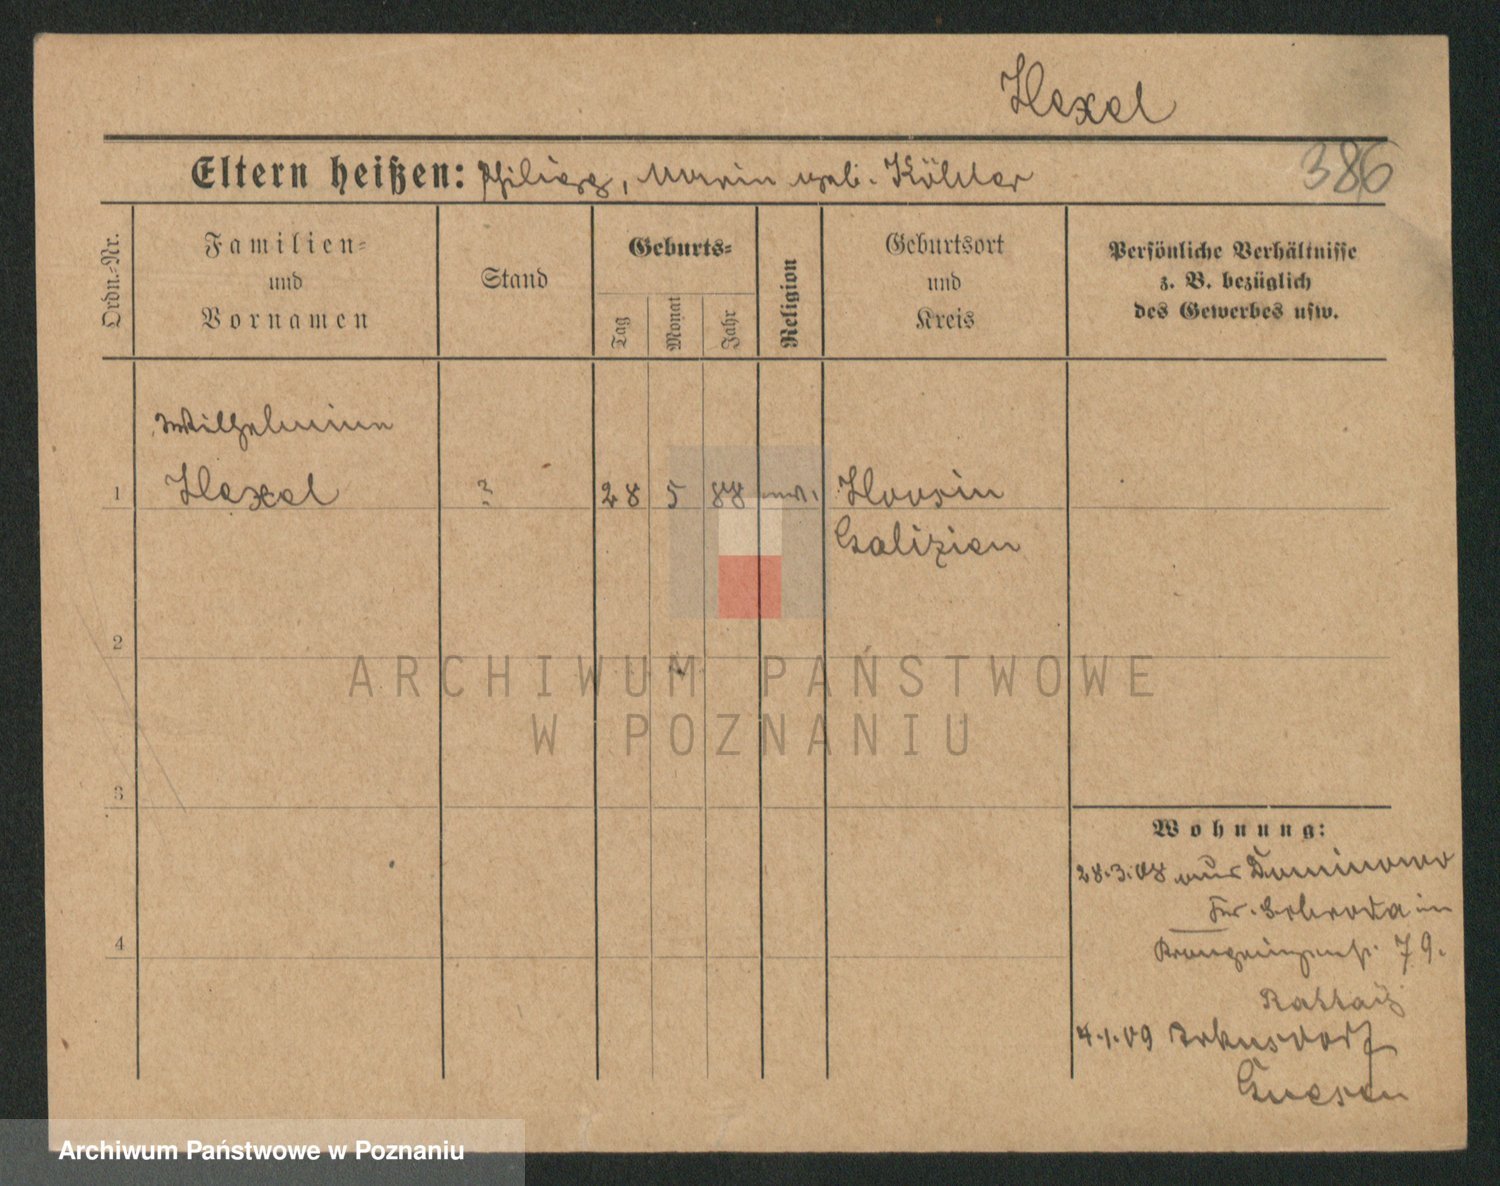 Hexel
Eltern heißen: Philipp, Marie geb. Köhler
386
Ordn.-Nr.
Familien-
und
Vornamen
Stand
Geburts-
Tag
Monat
Jahr
Religion
Geburtsort
und
Kreis
Persönliche Verhältnisse
z. B. bezüglich
des Gewerbes usw.
Wilhelmine
1 Hexel ? 28 5 88
Galizien
2
3
4
Wohnung:
28.3.08 aus Dominowo
Kr. Schroda in
Kronprinzenst. 79.
4.1.09
Gnesen
ARCHIWUM PAŃSTWOWE
W POZNANIU
Archiwum Państwowe w Poznaniu